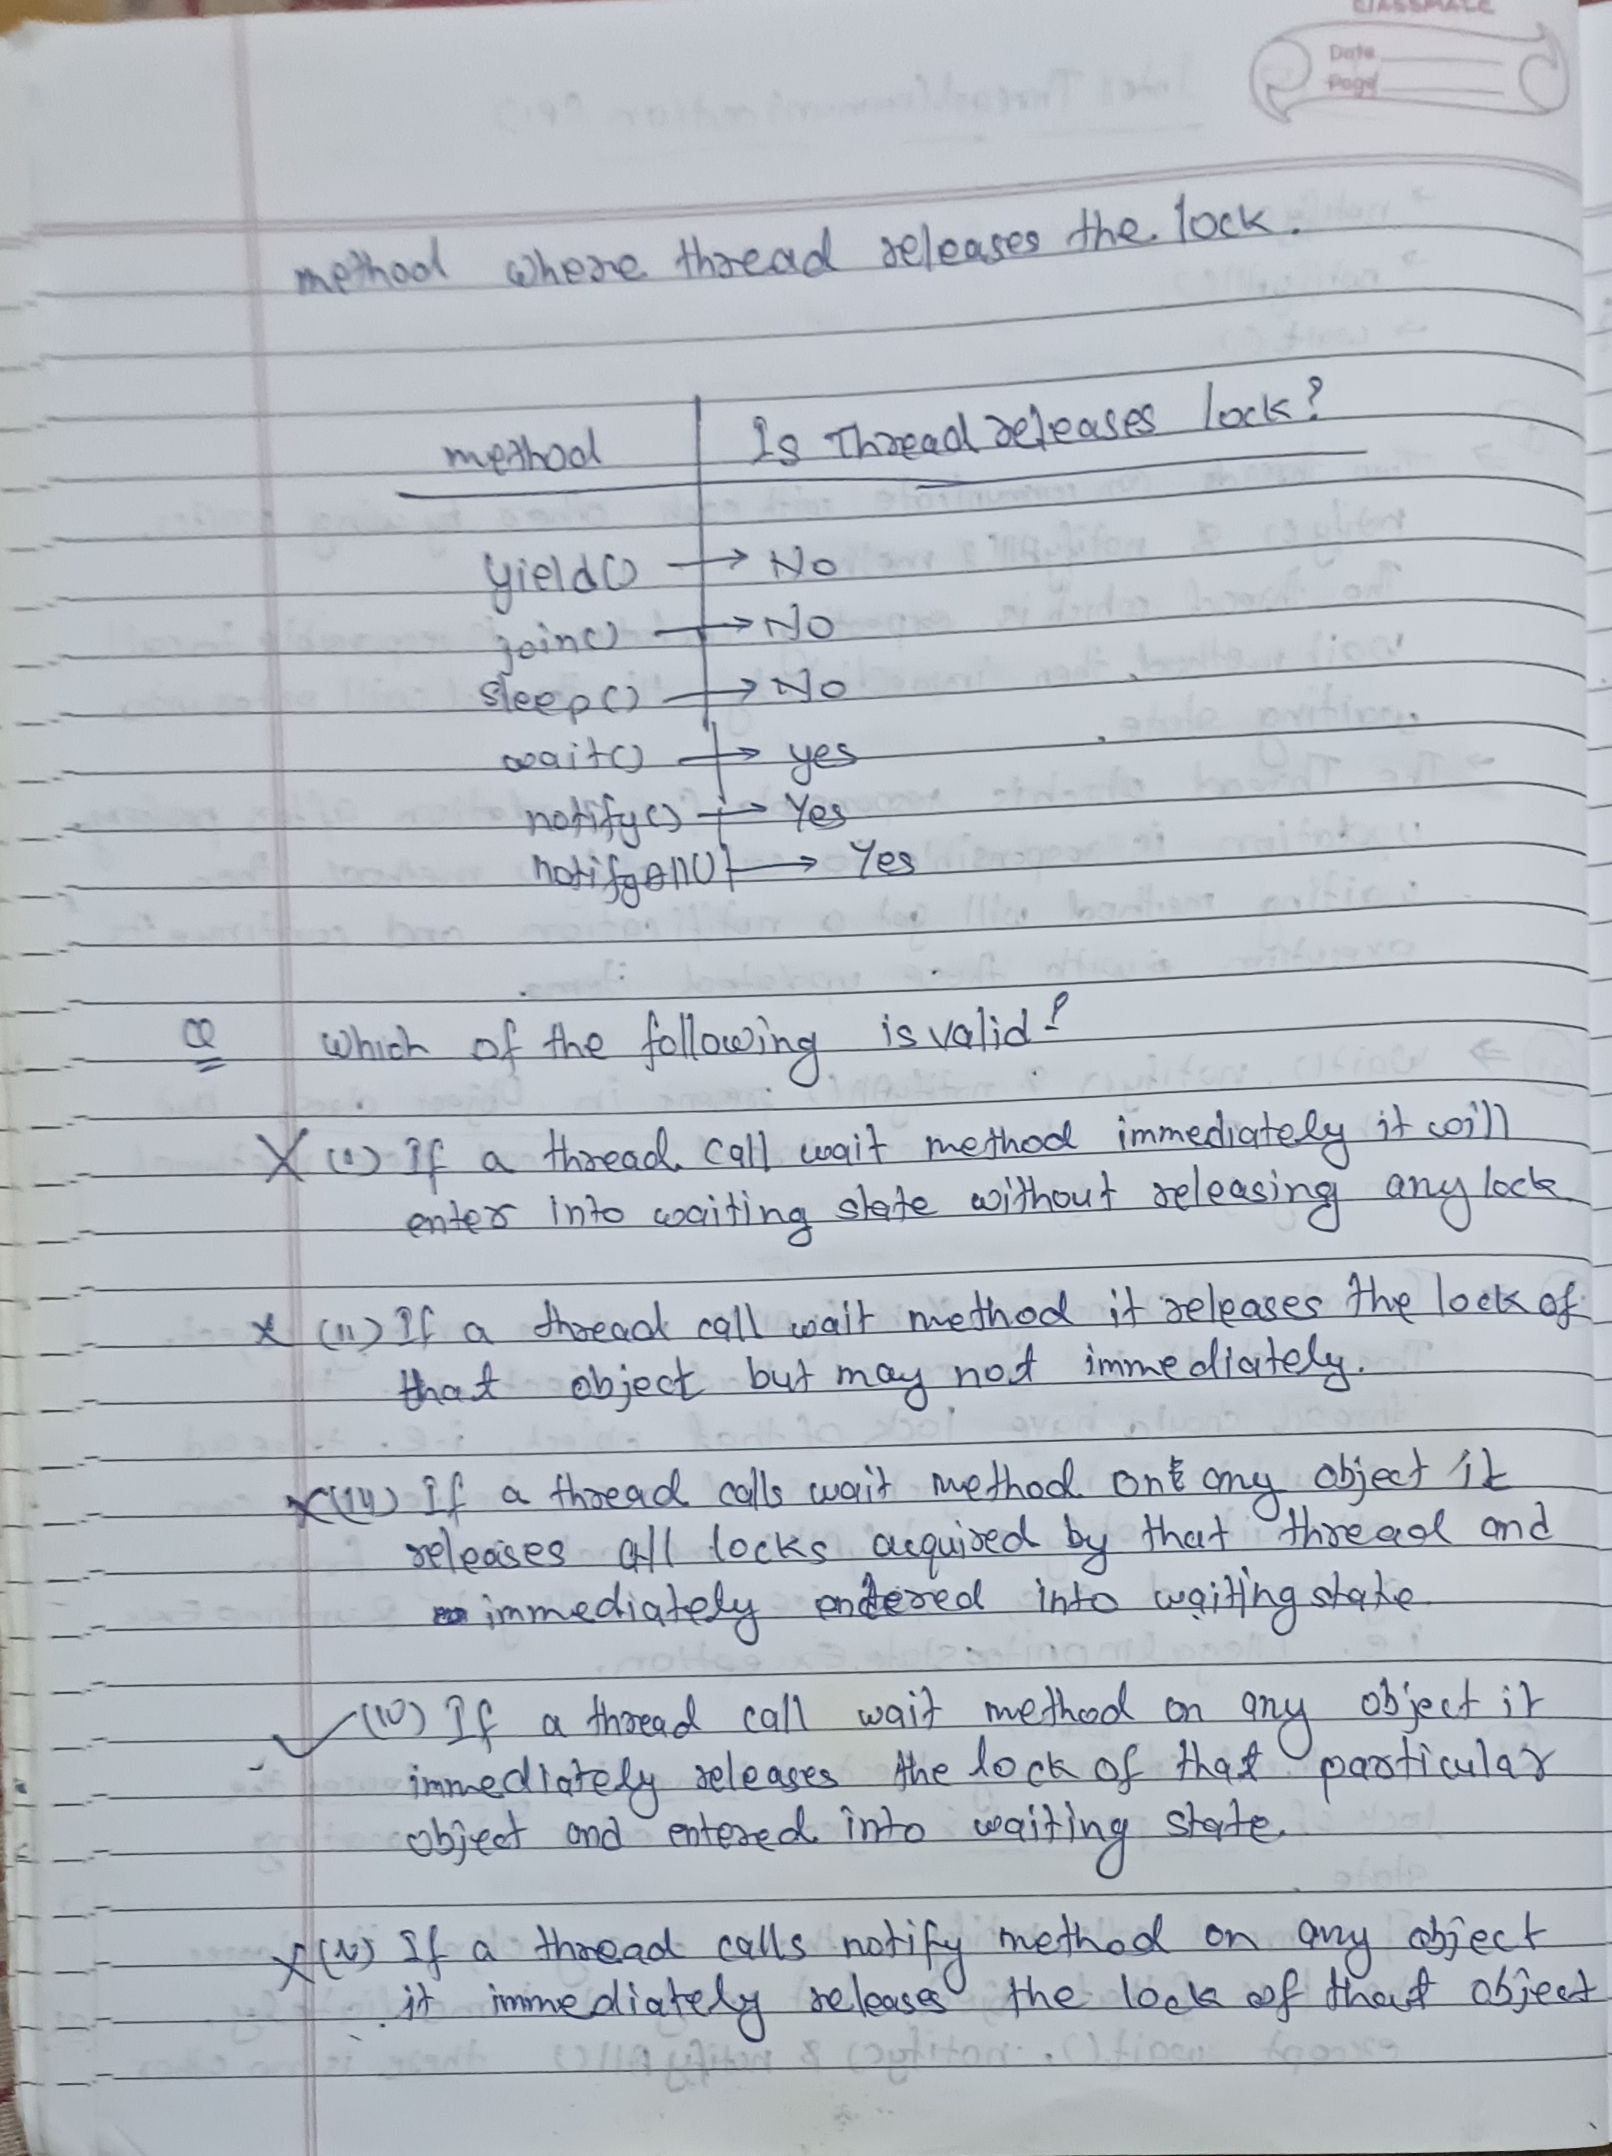 CLASSMATE
Date
Page
method where thread releases the lock.
method Is Thread releases lock?
yield() → No
join() → No
sleep() → No
wait() → yes
notify() → Yes
notifyAll() → Yes
Q Which of the following is valid?
X (i) If a thread call wait method immediately it will
enter into waiting state without releasing any lock
x (ii) If a thread call wait method it releases the lock of
that object but may not immediately.
x (iii) If a thread calls wait method on any object it
releases all locks acquired by that thread and
immediately entered into waiting state
✓ (iv) If a thread call wait method on any object it
immediately releases the lock of that particular
object and entered into waiting state.
x (v) If a thread calls notify method on any object
it immediately releases the lock of that object